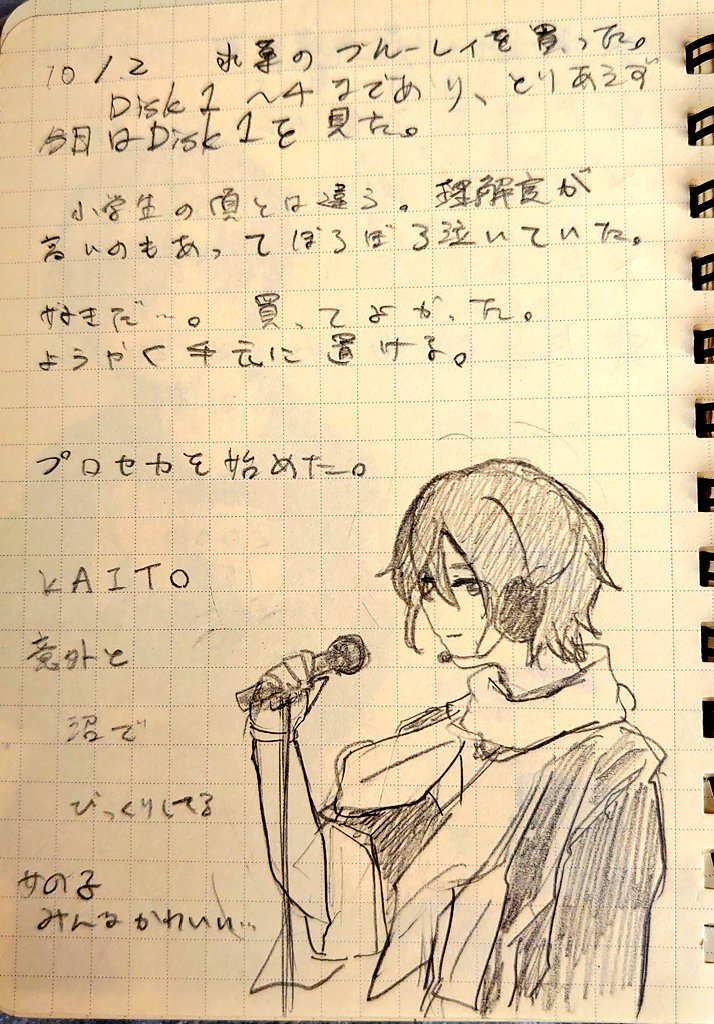 10/2 のブルーレイを買った。
Disk1〜4まであり、とりあえず
今日はDisk1を見た。
小学生の頃とは違う。理解度が
高いのもあってぼろぼろ泣いていた。
好きだ…。買ってよかった。
ようやく手元に置ける。
プロセカを始めた。
KAITO
意外と
沼で
びっくりしてる
女の子
みんなかわいい…